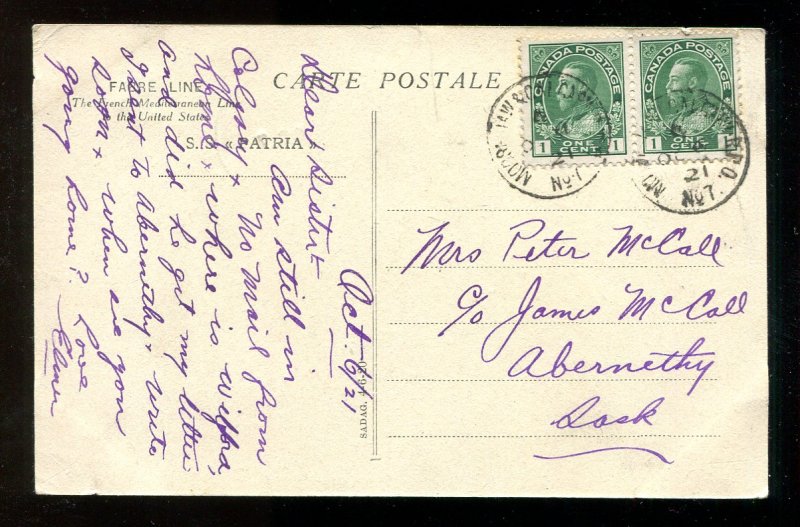 CARTE POSTALE
FABRE LINE
The French Mediterranean Line
to the United States
S.S. « PATRIA »
SADAG.
Oct. 6/21
Dear Sister±
Am still in
Calgary + no mail from
Home + where is Wilfred,
and did he get my letter
I sent to Abernethy + write
soon + when are you
going home? Love
Elmer
CANADA POSTAGE
1 ONE CENT 1
CANADA POSTAGE
1 ONE CENT 1
MOOSE JAW &
21
R.P.O.
No 7.
Mrs Peter McCall
c/o James McCall
Abernethy
Sask